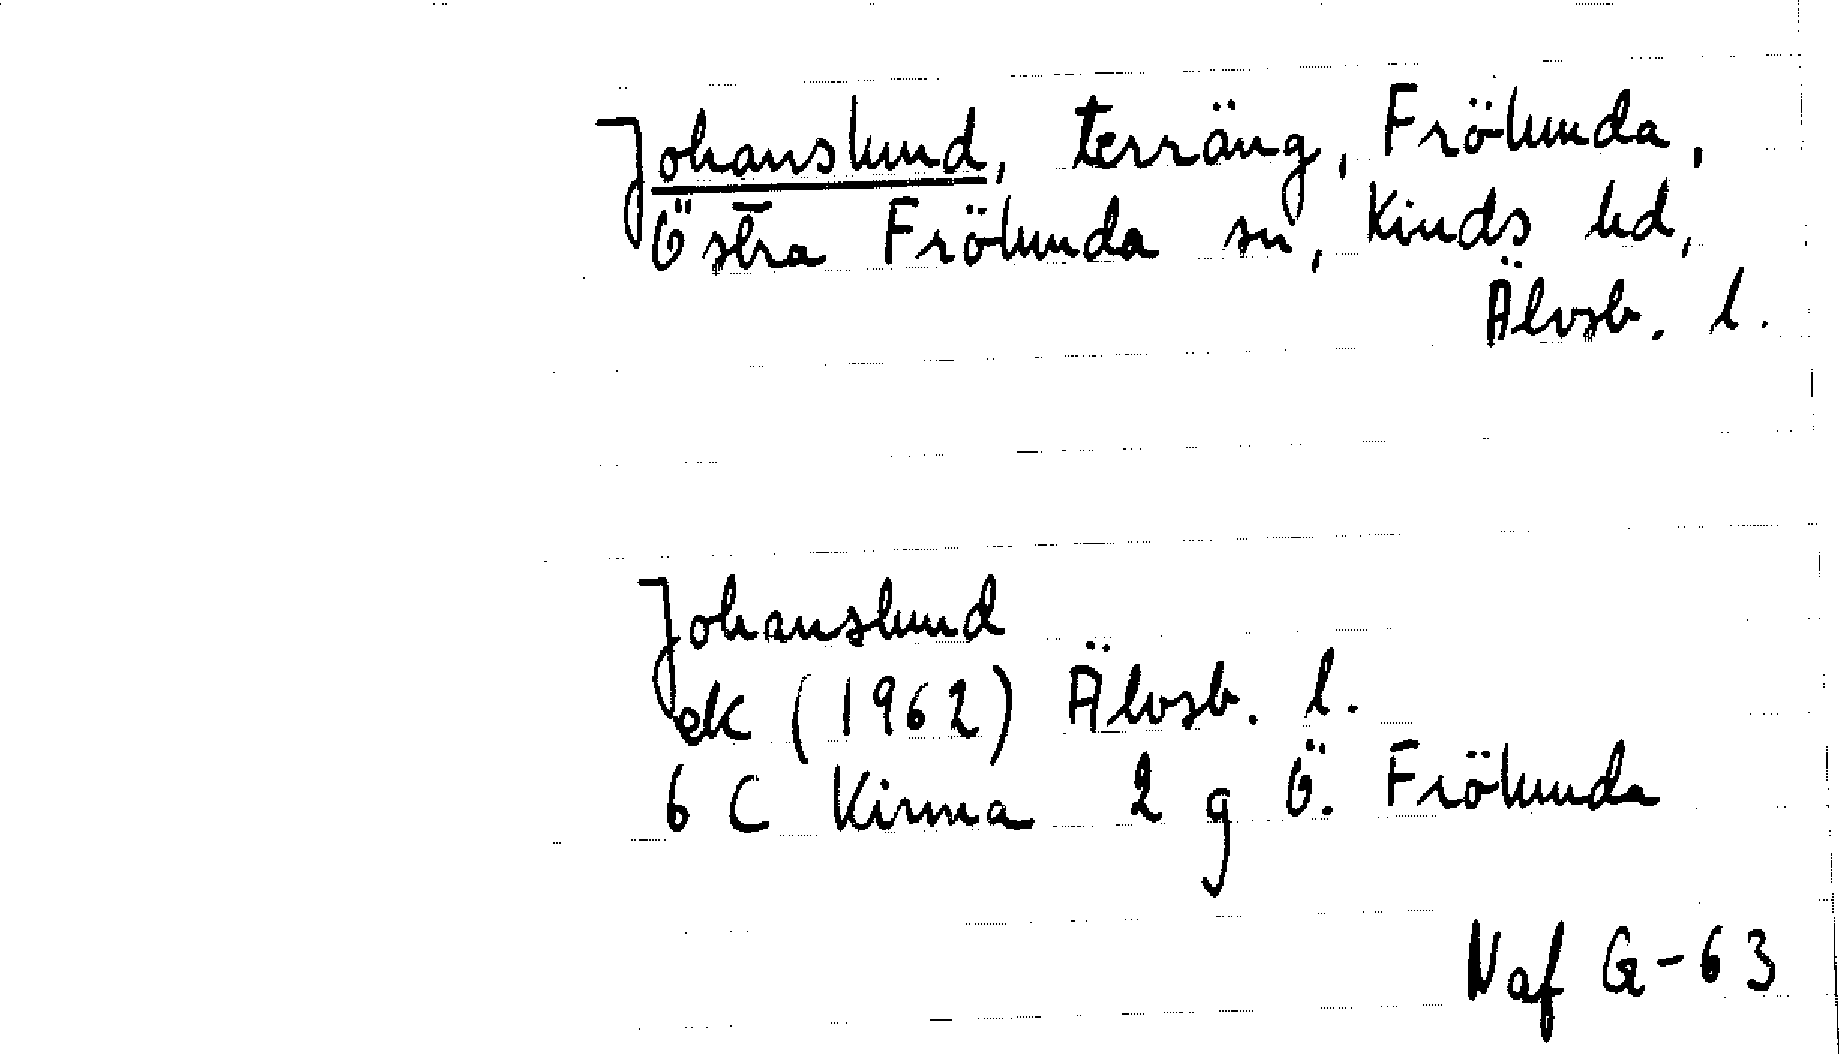 Johanslund, terräng, Frölunda,
Östra Frölunda sn, Kinds hd,
Älvsb. l.
Johanslund
ek (1962) Älvsb. l.
6 C Kinna 2 g Ö. Frölunda
Naf G-63